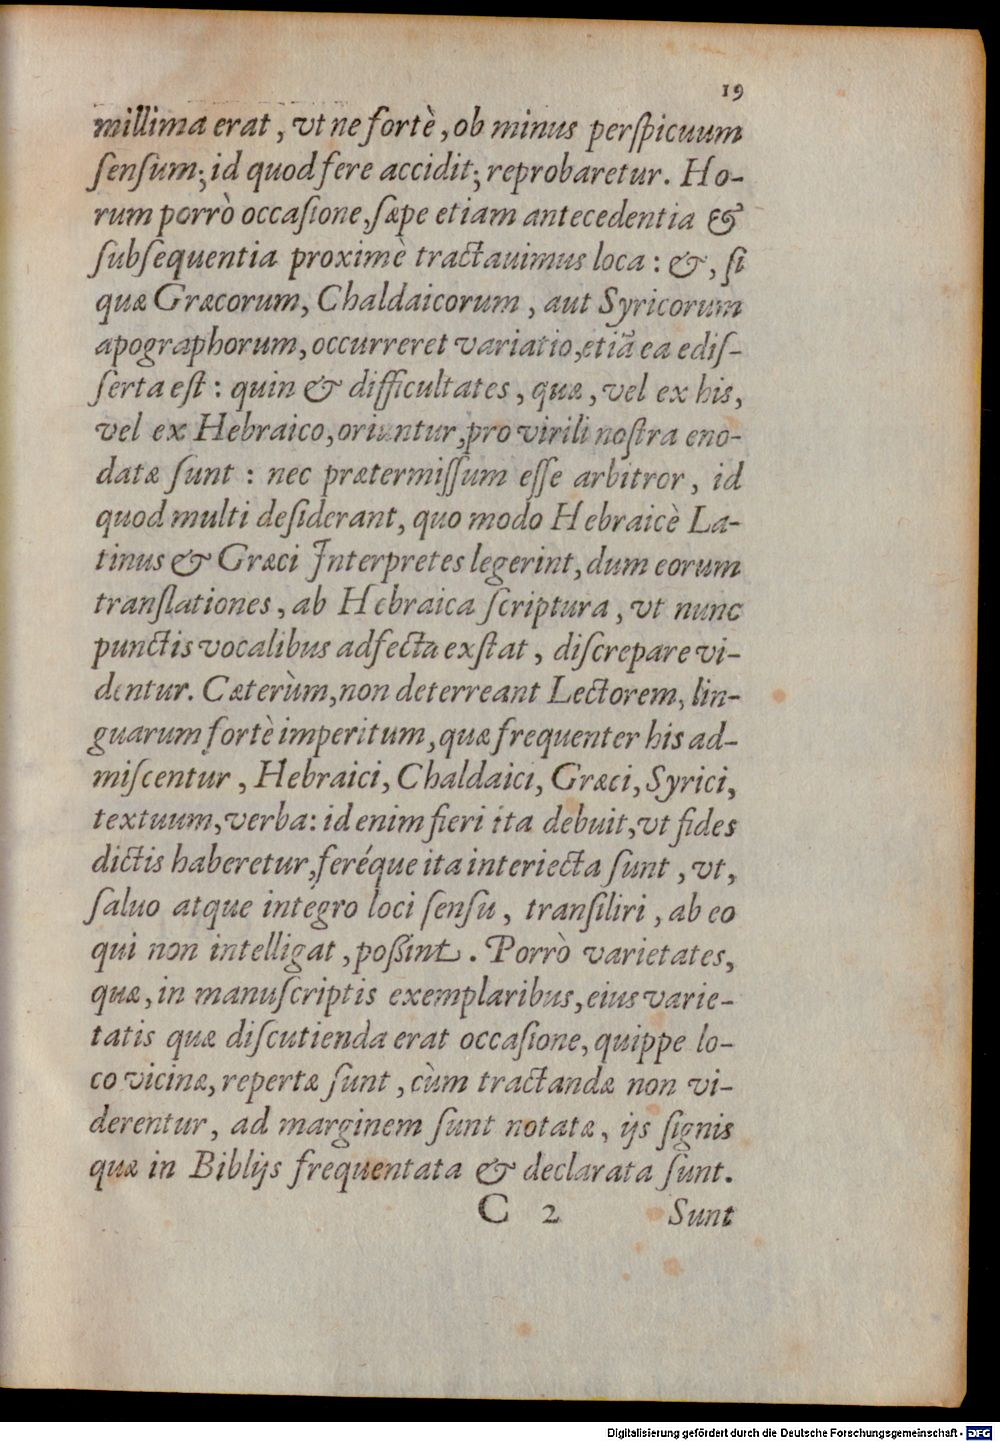 19
millima erat, vt ne fortè, ob minus perſpicuum
ſenſum; id quod fere accidit; reprobaretur. Ho-
rum porrò occaſione, ſæpe etiam antecedentia &
ſubſequentia proximè tractauimus loca: &, ſi
quæ Græcorum, Chaldaicorum, aut Syricorum
apographorum, occurreret variatio, etiã ea ediſ-
ſerta eſt: quin & difficultates, quæ, vel ex his,
vel ex Hebraico, oriuntur, pro virili noſtra eno-
datæ ſunt: nec prætermiſſum eſſe arbitror, id
quod multi deſiderant, quo modo Hebraicè La-
tinus & Græci Interpretes legerint, dum eorum
tranſlationes, ab Hebraica ſcriptura, vt nunc
punctis vocalibus adfecta exſtat, diſcrepare vi-
dentur. Cæterùm, non deterreant Lectorem, lin-
guarum fortè imperitum, quæ frequenter his ad-
miſcentur, Hebraici, Chaldaici, Græci, Syrici,
textuum, verba: id enim fieri ita debuit, vt fides
dictis haberetur, feréque ita interiecta ſunt, vt,
ſaluo atque integro loci ſenſu, tranſiliri, ab eo
qui non intelligat, poßint. Porrò varietates,
quæ, in manuſcriptis exemplaribus, eius varie-
tatis quæ diſcutienda erat occaſione, quippe lo-
co vicinæ, repertæ ſunt, cùm tractandæ non vi-
derentur, ad marginem ſunt notatæ, ijs ſignis
quæ in Biblijs frequentata & declarata ſunt.
C 2 Sunt
Digitalisierung gefördert durch die Deutsche Forschungsgemeinschaft - DFG